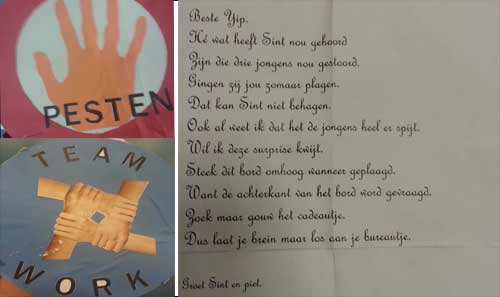 PESTEN
TEAM
WORK
Beste Yip.
Hé wat heeft Sint nou gehoord
Zijn die drie jongens nou gestoord.
Gingen zij jou zomaar plagen.
Dat kan Sint niet behagen.
Ook al weet ik dat het de jongens heel er spijt.
Wil ik deze surprise kwijt.
Steek dit bord omhoog wanneer geplaagd.
Want de achterkant van het bord word gevraagd.
Zoek maar gouw het cadeautje.
Dus laat je brein maar los aan je bureautje.
Groet Sint en piet.